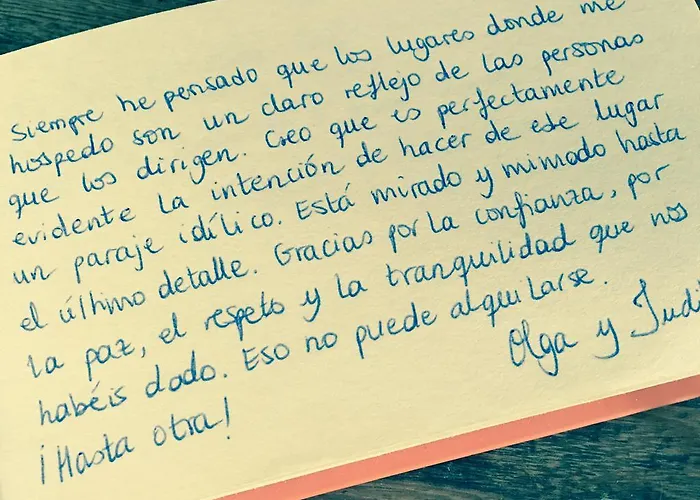 Siempre he pensado que los lugares donde me
hospedo son un claro reflejo de las personas
que los dirigen. Creo que es perfectamente
evidente la intención de hacer de ese lugar
un paraje idílico. Está mirado y mimado hasta
el último detalle. Gracias por la confianza, por
la paz, el respeto y la tranquilidad que nos
habéis dado. Eso no puede alquilarse.
¡Hasta otra!
Olga y Judi